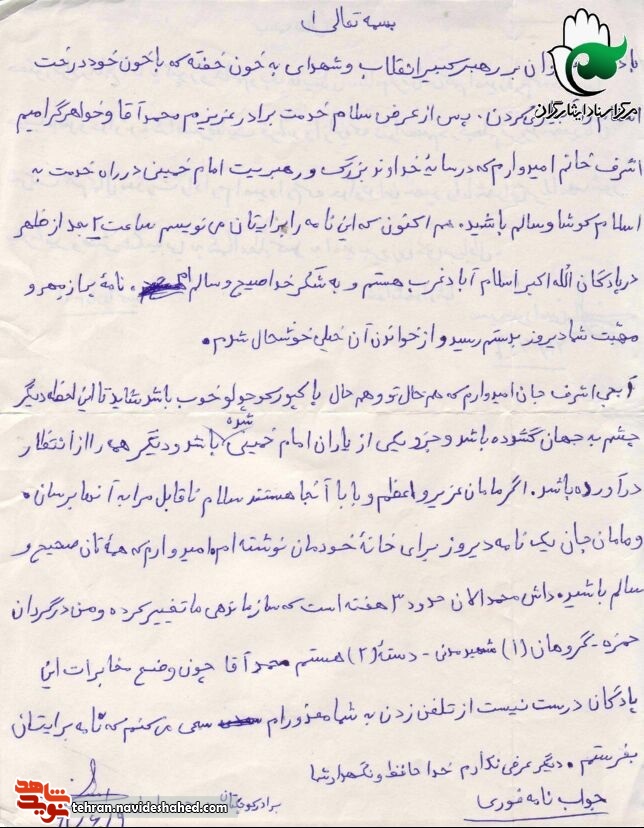 بسمه تعالی
بر رهبر کبیر انقلاب و شهدای به خون خفته که با خون خود درخت
مرکز اسناد ایثارگران
پس از عرض سلام خدمت برادر عزیزم محمد آقا و خواهر گرامیم
اشرف خانم امیدوارم که در سایهٔ خداوند بزرگ و رهبریت امام خمینی در راه خدمت به
اسلام کوشا و سالم باشید. هم اکنون که این نامه را برایتان می نویسم ساعت ۲ بعد از ظهر
در پادگان الله اکبر اسلام آباد غرب هستم و به شکر خدا صحیح و سالم. نامهٔ پر از مهر و
محبت شما دیروز بدستم رسید و از خواندن آن خیلی خوشحال شدم.
آبجی اشرف جان امیدوارم که هم حال تو و هم حال کوچولو خوب باشد شاید تا این لحظه دیگر
چشم به جهان گشوده باشد و جزو یکی از یاران امام خمینی شده باشد و دیگر همه را از انتظار
درآورده باشد. اگر مامان عزیز و اعظم و بابا آنجا هستند سلام ناقابل مرا به آنها برسان.
و مامان جان یک نامه دیروز برای خانهٔ خودمان نوشته ام امیدوارم که همه تان صحیح و
سالم باشید. داش محمد الان حدود ۳ هفته است که سازماندهی ما تغییر کرده و من در گردان
حمزه - گروهان (۱) شهید مدنی - دستهٔ (۲) هستم محمد آقا چون وضع مخابرات این
پادگان درست نیست از تلفن زدن به شما معذورم سعی می کنم که نامه برایتان
بفرستم. دیگر عرضی ندارم خدا حافظ و نگهدار شما
جواب نامه فوری
برادر کوچکتان
نوید شاهد
tehran.navideshahed.com